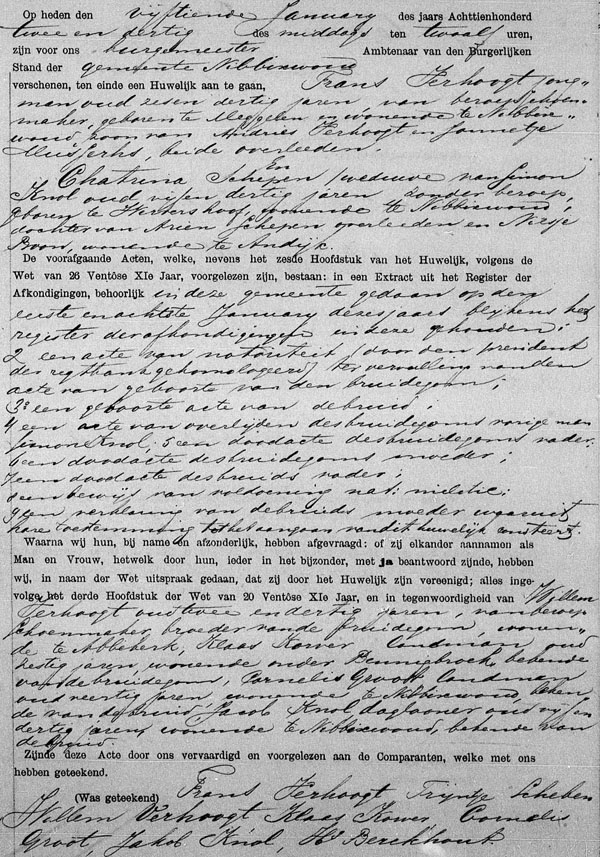 Op heden den vijftiende January des jaars Achttienhonderd
twee en dertig des middags ten twaalf uren,
zijn voor ons burgemeester Ambtenaar van den Burgerlijken
Stand der gemeente Nibbixwoud
verschenen, ten einde een Huwelijk aan te gaan, Frans Verhoogt jong=
man oud zesen dertig jaren, van beroep schoen=
maker, geboren te en wonende te Nibbix=
woud, zoon van Andries Verhoogt en Jannetje
beide overleeden.
En
Chatrina Schepen weduwe van Simon
Knol oud vijfen dertig jaren zonder beroep,
geboren te wonende te Nibbixwoud,
dochter van Arien Schepen overleeden en Niesje
wonende te Andijk.
De voorafgaande Acten, welke, nevens het zesde Hoofdstuk van het Huwelijk, volgens de
Wet van 26 Ventôse XIe Jaar, voorgelezen zijn, bestaan: in een Extract uit het Register der
Afkondigingen, behoorlijk in deze gemeente gedaan op den
eerste en achtste January dezes jaars blijkens het
register der afkondigingen in deze gehouden;
2 een acte van notoriteit (door den president
der regtbank gehomologeerd) ter vervulling van den
acte van geboorte van den bruidegom;
3e een geboorte acte van de bruid;
4 een acte van overlijden des bruidegoms vorige man
Simon Knol, 5 een doodacte des bruidegoms vader;
6 een doodacte des bruidegoms moeder;
7 een doodacte des bruids vader;
8 een bewijs van voldoening nat: militie;
9 een verklaring van de bruids moeder waaruit
hare toestemming tot het aangaan van dit huwelijk consteert.
Waarna wij hun, bij name en afzonderlijk, hebben afgevraagd: of zij elkander aannamen als
Man en Vrouw, hetwelk door hun, ieder in het bijzonder, met ja beantwoord zijnde, hebben
wij, in naam der Wet uitspraak gedaan, dat zij door het Huwelijk zijn vereenigd; alles inge-
volge het derde Hoofdstuk der Wet van 20 Ventôse XIe Jaar, en in tegenwoordigheid van Willem
Verhoogt oud twee en dertig jaren, van beroep
schoenmaker, broeder van de bruidegom, wonen=
de te Abbekerk, Klaas Kower landman oud
zestig jaren, wonende onder Benningbroek, bekende
van de bruidegom, Cornelis Groot landman
oud veertig jaren wonende te Nibbixwoud, beken
de van de bruid, Jacob Knol dagloner oud vijf en
dertig jaren, wonende te Nibbixwoud, bekende van
de bruid.
Zijnde deze Acte door ons vervaardigd en voorgelezen aan de Comparanten, welke met ons
hebben geteekend.
(Was geteekend) Frans Verhoogt Trijntje Scheben
Willem Verhoogt Klaas Kower, Cornelis
Groot, Jakob Knol, Hs Berckhout